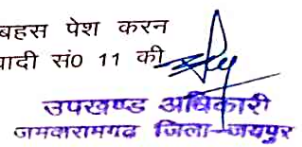 बहस पेश करन
वादी सं0 11 की
उपखण्ड अधिकारी
जमवारामगढ जिला-जयपुर